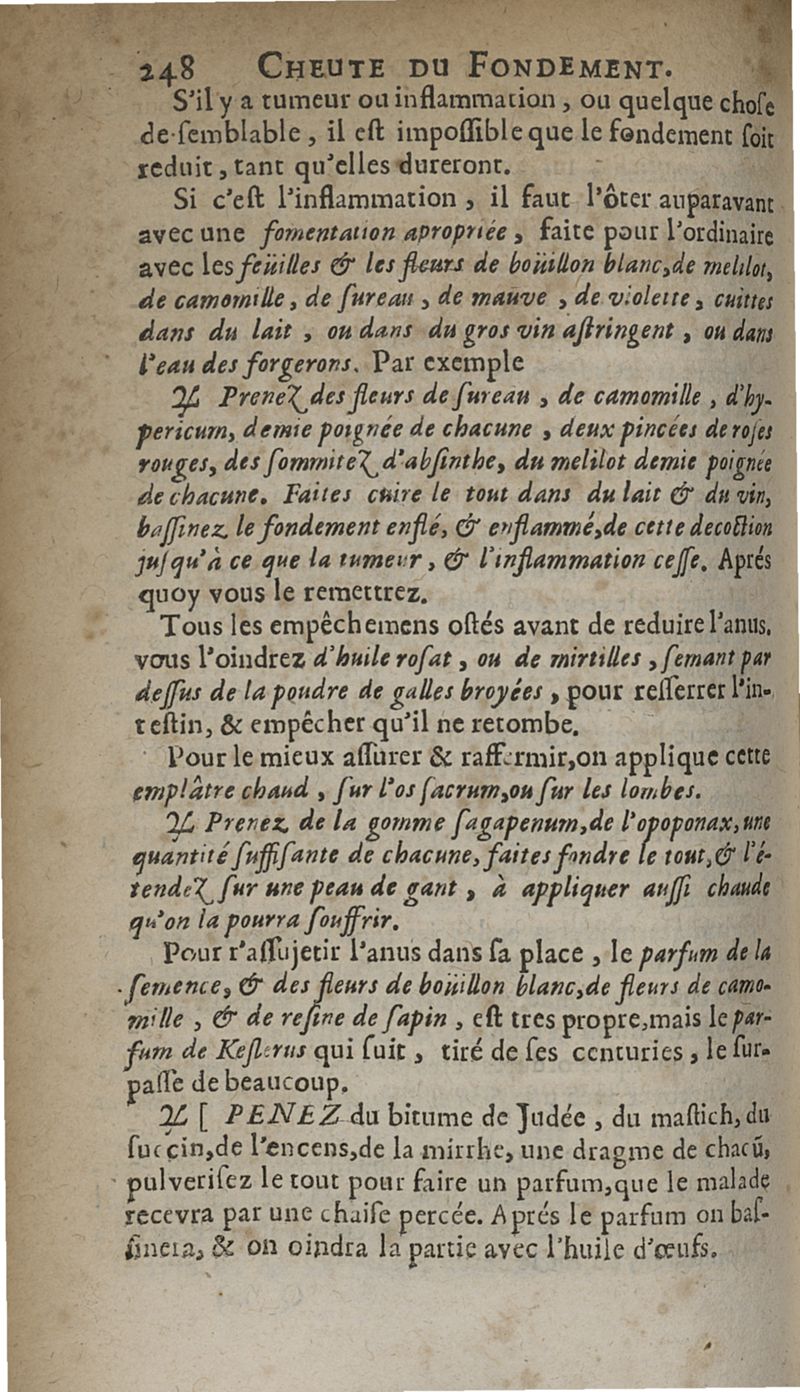 248 CHEUTE DU FONDEMENT.
S'il y a tumeur ou inflammation, ou quelque choſe
de ſemblable, il eſt impoſſible que le fondement ſoit
reduit, tant qu'elles dureront.
Si c'eſt l'inflammation, il faut l'ôter auparavant
avec une fomentation apropriée, faite pour l'ordinaire
avec les feüilles & les fleurs de boüillon blanc, de melilot,
de camomille, de ſureau, de mauve, de violette, cuittes
dans du lait, ou dans du gros vin aſtringent, ou dans
l'eau des forgerons. Par exemple
♃ Prenez des fleurs de ſureau, de camomille, d'hy-
pericum, demie poignée de chacune, deux pincées de roſes
rouges, des ſommitez d'abſinthe, du melilot demie poignée
de chacune. Faites cuire le tout dans du lait & du vin,
baſſinez le fondement enflé, & enflammé, de cette decoction
juſqu'à ce que la tumeur, & l'inflammation ceſſe. Aprés
quoy vous le remettrez.
Tous les empêchemens oſtés avant de reduire l'anus,
vous l'oindrez d'huile roſat, ou de mirtilles, ſemant par
deſſus de la poudre de galles broyées, pour reſſerrer l'in-
teſtin, & empêcher qu'il ne retombe.
Pour le mieux aſſurer & raffermir, on applique cette
emplâtre chaud, ſur l'os ſacrum, ou ſur les lombes.
♃ Prenez de la gomme ſagapenum, de l'opoponax, une
quantité ſuffiſante de chacune, faites fondre le tout, & l'é-
tendez ſur une peau de gant, à appliquer auſſi chaude
qu'on la pourra ſouffrir.
Pour r'aſſujetir l'anus dans ſa place, le parfum de la
ſemence, & des fleurs de boüillon blanc, de fleurs de camo-
mille, & de reſine de ſapin, eſt tres propre, mais le par-
fum de Keſlerus qui ſuit, tiré de ſes centuries, le ſur-
paſſe de beaucoup.
♃ [ PENEZ du bitume de Judée, du maſtich, du
ſuccin, de l'encens, de la mirrhe, une dragme de chacũ,
pulveriſez le tout pour faire un parfum, que le malade
recevra par une chaiſe percée. Aprés le parfum on baſ-
ſinera, & on oindra la partie avec l'huile d'œufs.